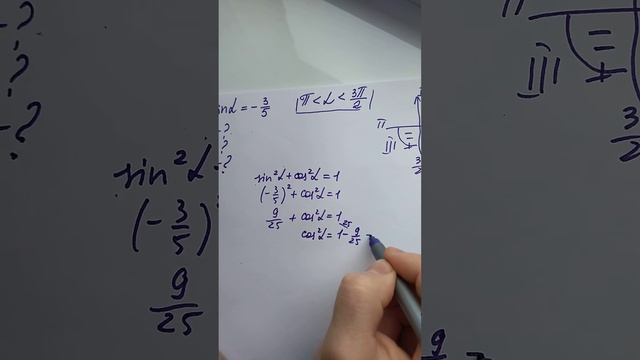 sinα = -3/5 |π < α < 3π/2|
-?
?
-?
sin²α + cos²α = 1
(-3/5)² + cos²α = 1
9/25 + cos²α = 1
cos²α = 1²⁵ - 9/25 =
II
III
3
2
-?
?
-?
sin²α
(-3/5)²
9/25
II
III
3
2
9